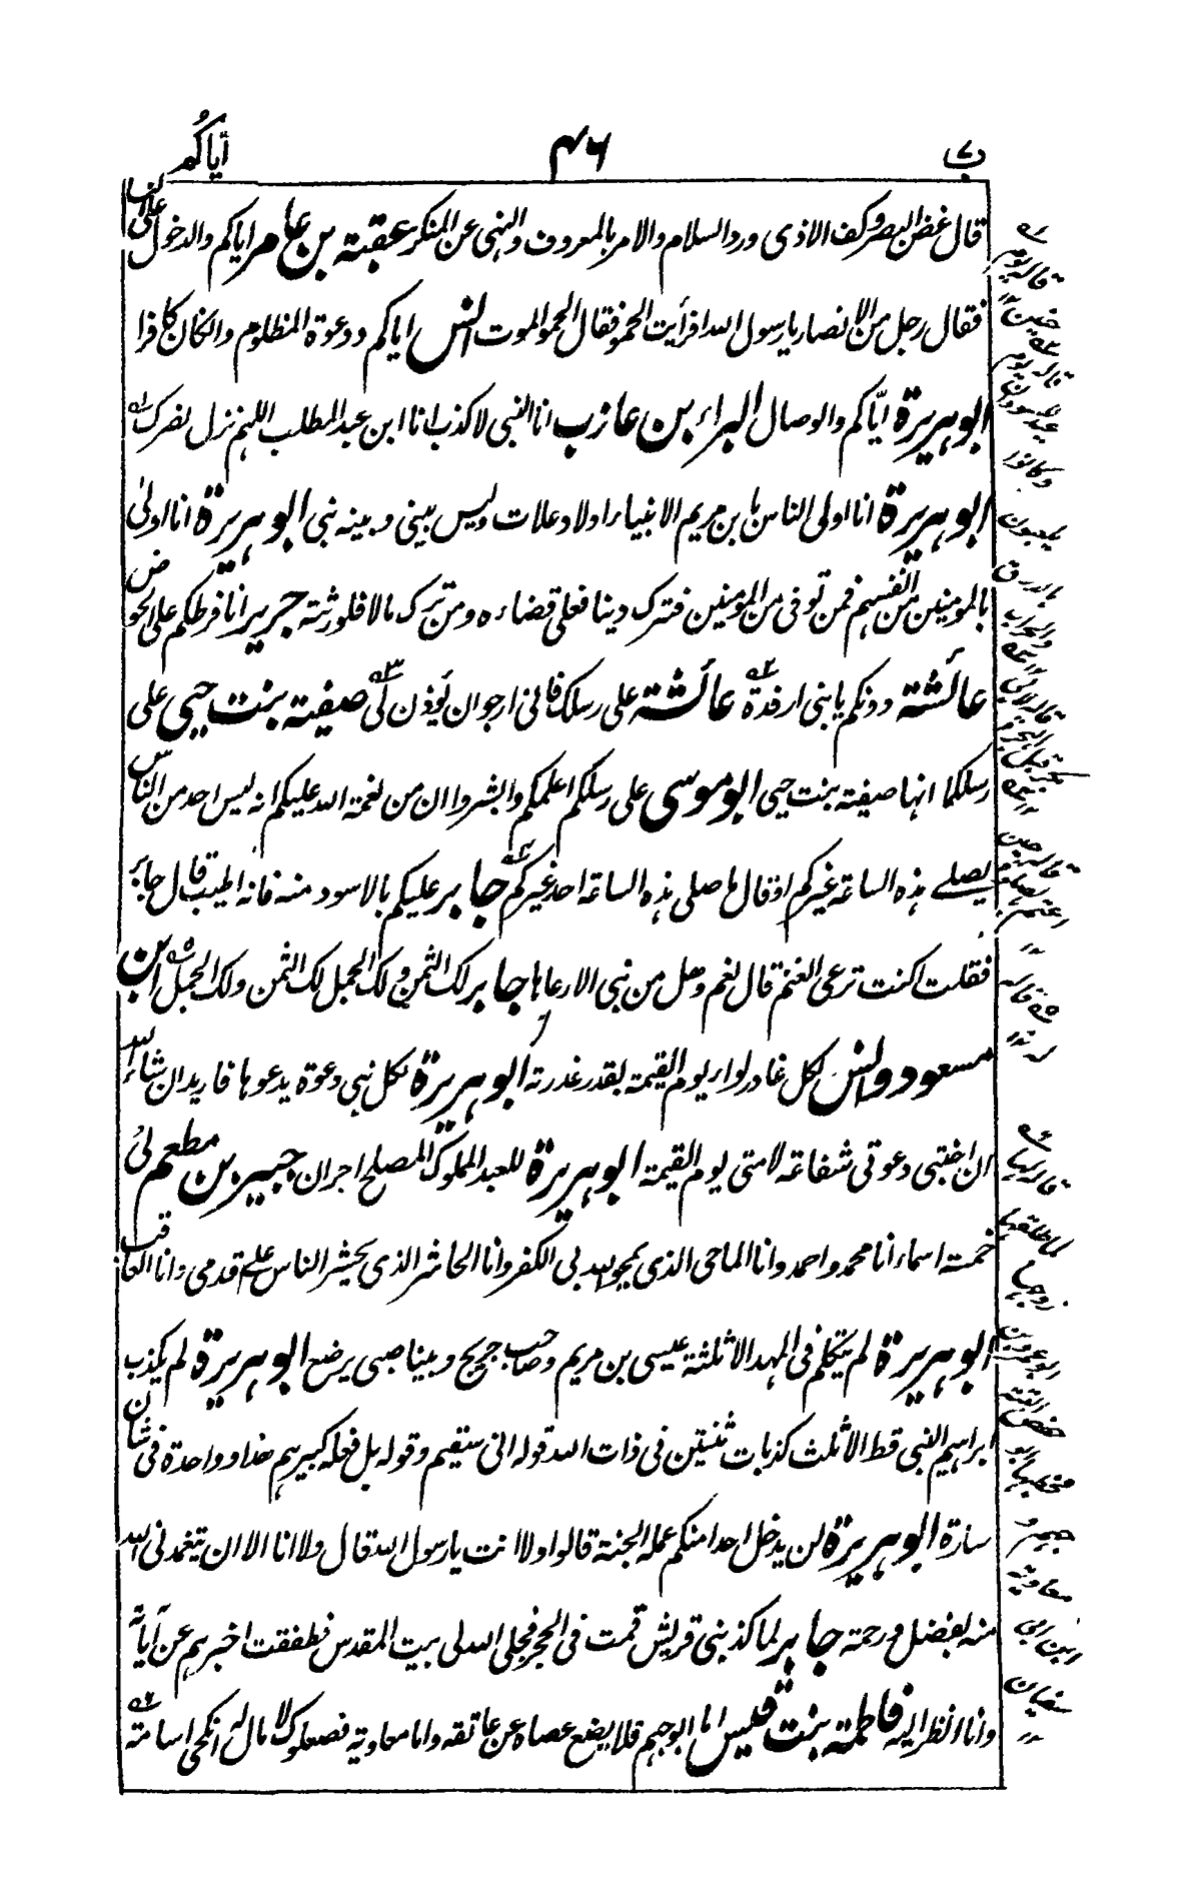 ب
۴۶
اياكم
قال غض البصر وكف الاذى ورد السلام والامر بالمعروف والنهى عن المنكر عقبة بن عامر اياكم والدخول على النساء
فقال رجل من الانصار يا رسول الله افرأيت الحمو فقال الحمو الموت انس اياكم ودعوة المظلوم وان كان كافرا
ابو هريرة ايّاكم والوصال البراء بن عازب انا النبى لا كذب انا ابن عبد المطلب اللهم نزل نصرك
ابو هريرة انا اولى الناس بابن مريم الانبياء اولاد علات وليس بينى وبينه نبى ابو هريرة انا اولىٰ
بالمومنين من انفسهم فمن توفى من المومنين فترك دينا فعلى قضاءه ومن ترك مالا فلورثته جرير انا فرطكم على الحوض
عائشة دونكم يا بنى ارفدة عائشة على رسلك فانى ارجو ان يؤذن لى صفية بنت حيى على
رسلكما انها صفية بنت حيى ابو موسى على رسلكم اعلمكم وابشروا ان من نعمة الله عليكم انه ليس احد من الناس
يصلے هذه الساعة غيركم او قال ما صلى هذه الساعة احد غيركم جابر عليكم بالاسود منه فانه اطيب قال جابر
فقلت اكنت ترعى الغنم قال نعم وهل من نبى الا رعاها جابر لك الثمن ولك الجمل لك الثمن ولك الجمل ابن
مسعود وانس لكل غادر لواء يوم القيمة بقدر غدرته ابو هريرة لكل نبى دعوة يدعوها فاريد ان شاء الله
ان اختبى دعوتى شفاعة لامتى يوم القيمة ابو هريرة للعبد المملوك المصلح اجران جبير بن مطعم لى
خمسة اسماء انا محمد واحمد وانا الماحى الذى يمحو الله بى الكفر وانا الحاشر الذى يحشر الناس علے قدمى وانا العاقب
ابو هريرة لم يتكلم فى المهد الا ثلثة عيسى بن مريم وصاحب جريج وبينا صبى يرضع ابو هريرة لم يكذب
ابراهيم النبى قط الا ثلث كذبات ثنتين فى ذات الله قوله انى سقيم وقوله بل فعله كبيرهم هذا وواحدة فى شان
سارة ابو هريرة لن يدخل احدا منكم عمله الجنة قالوا ولا انت يا رسول الله قال ولا انا الا ان يتغمدنى الله
منه بفضل ورحمة جابر لما كذبنى قريش قمت فى الحجر فجلى الله لى بيت المقدس فطفقت اخبرهم عن آياته
وانا انظر اليه فاطمة بنت قيس اما ابو جهم فلا يضع عصاه عن عاتقه واما معاوية فصعلوك لا مال له انكحى اسامة
قاله يوم
حنين
قاله يوم
عيد
وكانوا
يلعبون
بالدرق
والحراب
قاله حين
اعتم بصلوة
قاله
قاله لها
لما طلقها
زوجها
ابو عمرو بن
حفص
فخطبها ابو
جهم و
معاوية
ابن ابى
سفيان